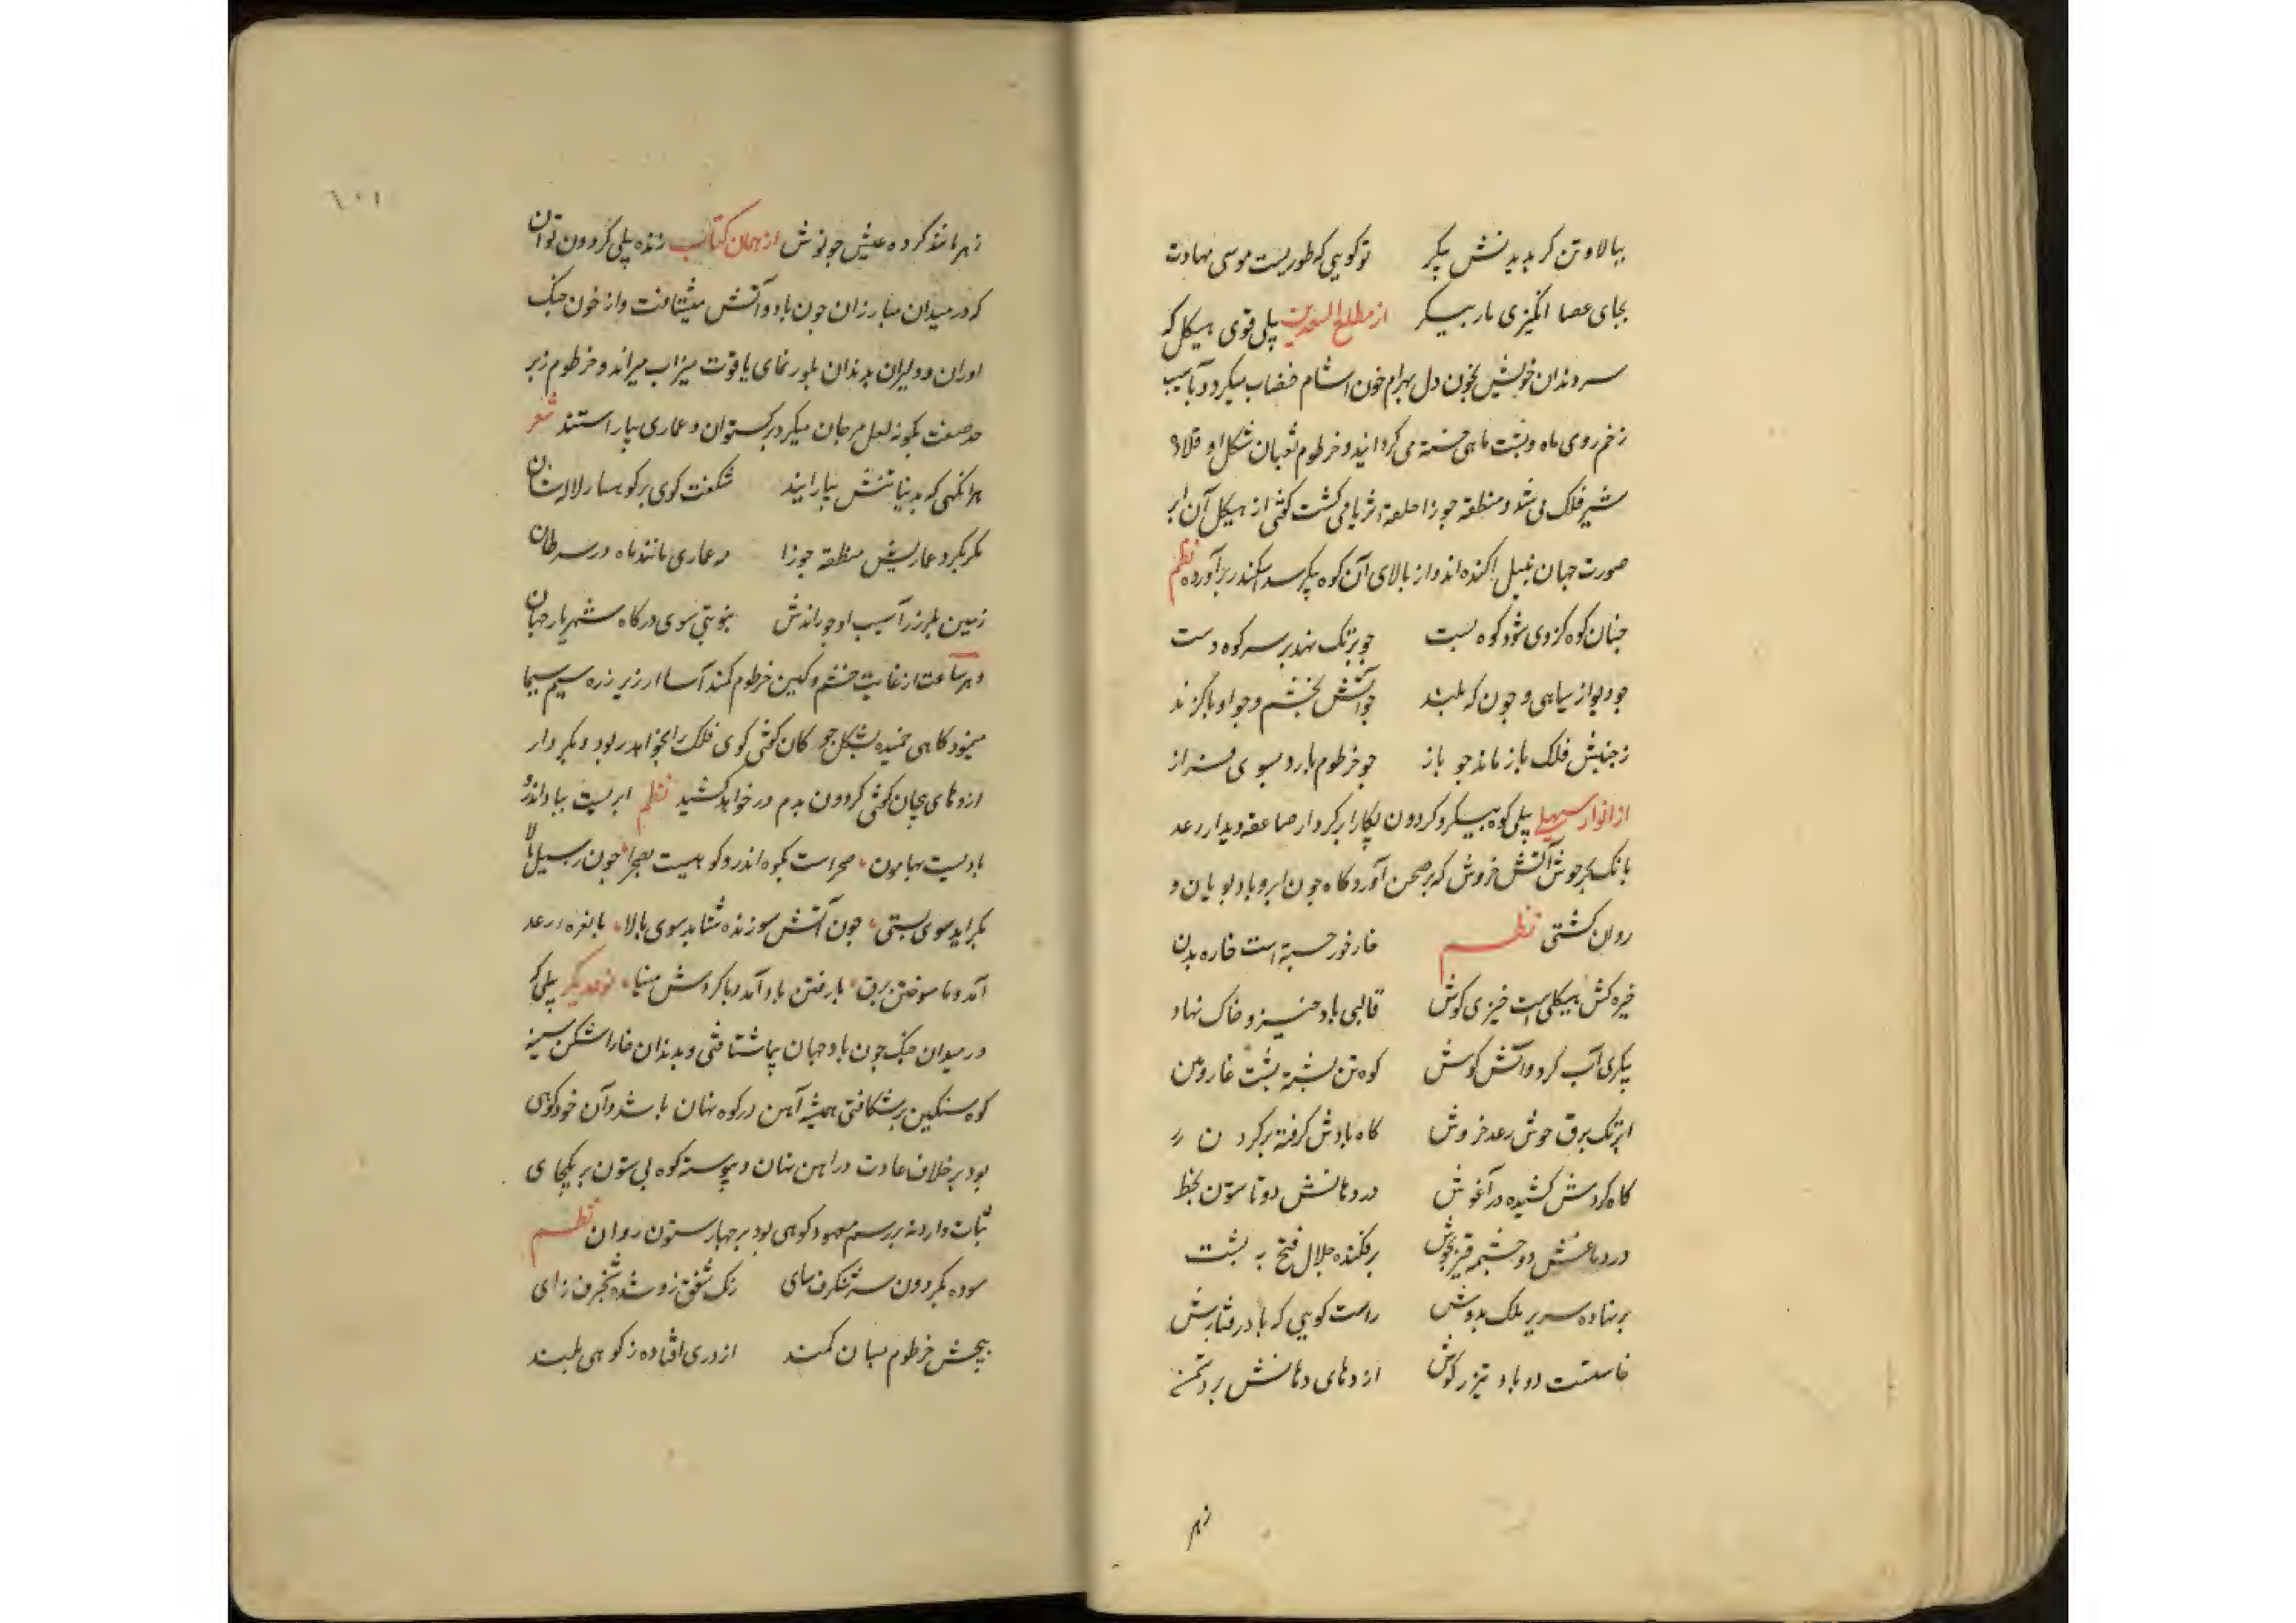 ببالا و تن کر بدیدنش پیکر توکویی که طوریست موسی نهادت
بجای عصا انکیزی مار بیسکر از مطلع السعدین پیلی قوی هیکل که
سر دندان خویش بخون دل بهرام خون اشام خضاب میکرد و بآسیب
زخم روی ماه و پشت ماهی خسته می کردانید و خرطوم ثعبان شکل او قلاده
شیر فلک می شد و منطقه جوزا حلقه ثریا می کشت کفتی از هیکل آن ابر
صورت جهان به نیل اکنده اند و از بالای آن کوه پیکر سد اسکندر برآورده نظم
چنان کوه کزوی شود کوه پست چو بر تک نهد بر سر کوه دست
چو دیو از سیاهی و چون که بلند چو آتش بخشم و چو او با کزند
ز جنبش فلک باز ماند چو باز چو خرطوم یارد بسوی فراز
از انوار سهیلی پیلی کوه پیکر و کردون پیکار ابر کردار صاعقه دیدار رعد
بانک بحر جوش آتش خروش که بر صحن آوردکاه چون ابر و باد پویان و
روان کشتی نظم خار خور جسته است خاره بدن
خیره کش هیکلی است خیزی کوش قالبی باد خیز و خاک نهاد
پیکری آب کرد و آتش کوش کوه تن پشته پشت غار دهن
ابر تک برق جوش رعد خروش کاه بادش کرفته بر کردن
کاه کردش کشیده در آغوش در دهانش دو تا ستون بخط
در دماغش دو چشمه قیر بجوش برفکنده جلال فتح به پشت
بر نهاده سریر ملک بدوش راست کویی که با در فتارش
خاسست دو باد تیز رکوش اژدهای دهانش بر دشمن
زهر
۱۰۱
زهر مانند کرده عیش چو نوش از همان کتاب زنده پیلی کردون توان
که در میدان مبارزان چون باد و آتش میشتافت و از خون جنک
اوران و دلیران بدندان بلور نمای یاقوت میزاب میراند و خرطوم زبر
جد صفت بکونه لعل مرجان میکرد برکستوان و عماری بیاراستند شعر
هر انکهی که بدنیا تنش بیارایند شکفت کوی بر کوهسار لاله ستان
کمر بکرد عماریش منطقه جوزا در عماری مانند ماه در سرطان
زمین بلرزد ز آسیب او چو رانندش بنوبتی سوی درکاه شهریار جهان
و هر ساعت از غایت خشم و کین خرطوم کمند آسا از زیر زره سیم سیما
مینمود کاهی خمیده بشکل چوکان کفتی کوی فلک را بخواهد ربود و دیکر دار
اژدهای پیچان کفتی کردون بدم در خواهد کشید نظم ابریست بباد اندر و
بادیست بهامون صحراست بکوه اندر و کوهیست بصحرا چون سیل بالا
بکراید سوی پستی چون آتش سوزنده شتابد سوی بالا با نعره رعد
آمد و با سوختن برق با رفتن باد آمد و با کردش مینا نوع دیکر پیلی که
در میدان جنک چون باد جهان پیما شتافتی و بدندان خارا شکن سینه
کوه سنکین بر شکافتی همیشه آهن در کوه نهان باشد و آن خود کوهی
بود بر خلاف عادت در اهن نهان و پیوسته کوه بی ستون بر یکجای
ثبات دارد نه بر رسم معهود کوهی بود بر چهار ستون روان نظم
سوده بکردون سر شنکرف سای رنک شفق زو شده شنجرف زای
پیچش خرطوم بسان کمند اژدری افتاده ز کوهی بلند